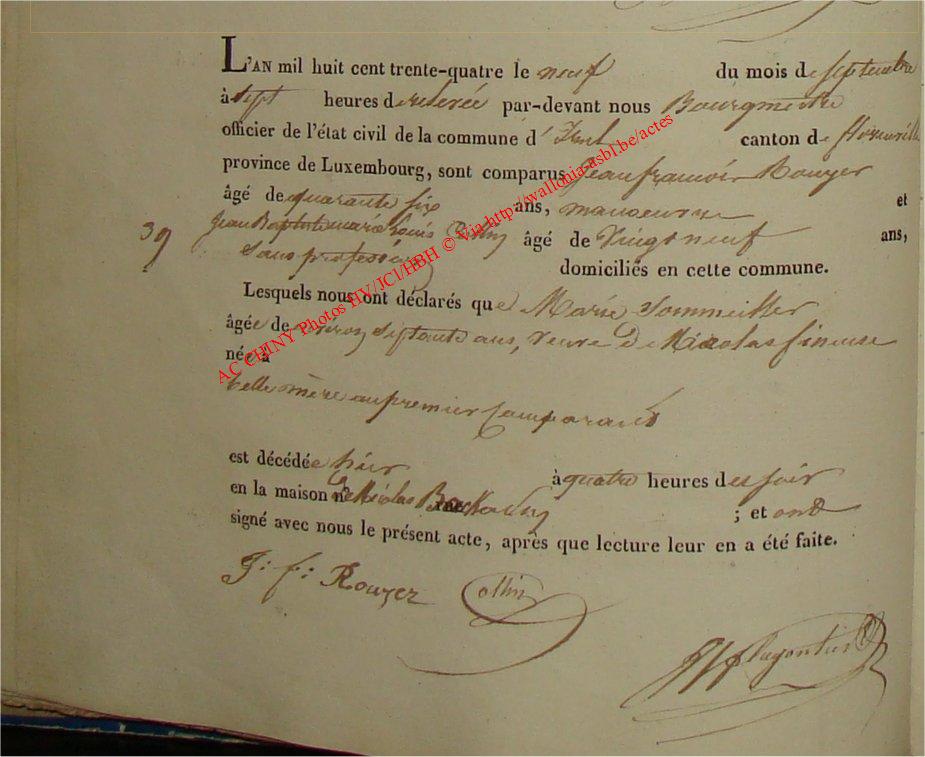 L'AN mil huit cent trente-quatre le neuf du mois de septembre
à sept heures de relevée par-devant nous Bourgmestre
officier de l'état civil de la commune d' canton de florenville
province de Luxembourg, sont comparus Jean françois Rouyer
âgé de quarante six ans, manoeuvre et
39 Jean Baptiste marie Louis Collin âgé de Vingt neuf ans,
Sans profession domiciliés en cette commune.
Lesquels nous ont déclarés que Marie Sommeiller
âgée de environ septante ans, veuve de Nicolas fineuse
née à
belle mère au premier Comparant
est décédée hier à quatre heures de soir
en la maison de Nicolas ; et ont
signé avec nous le présent acte, après que lecture leur en a été faite.
J: f: Rouyer Collin
AC CHINY Photos HV/JCl/HBH © Via http://wallonia-asbl.be/actes